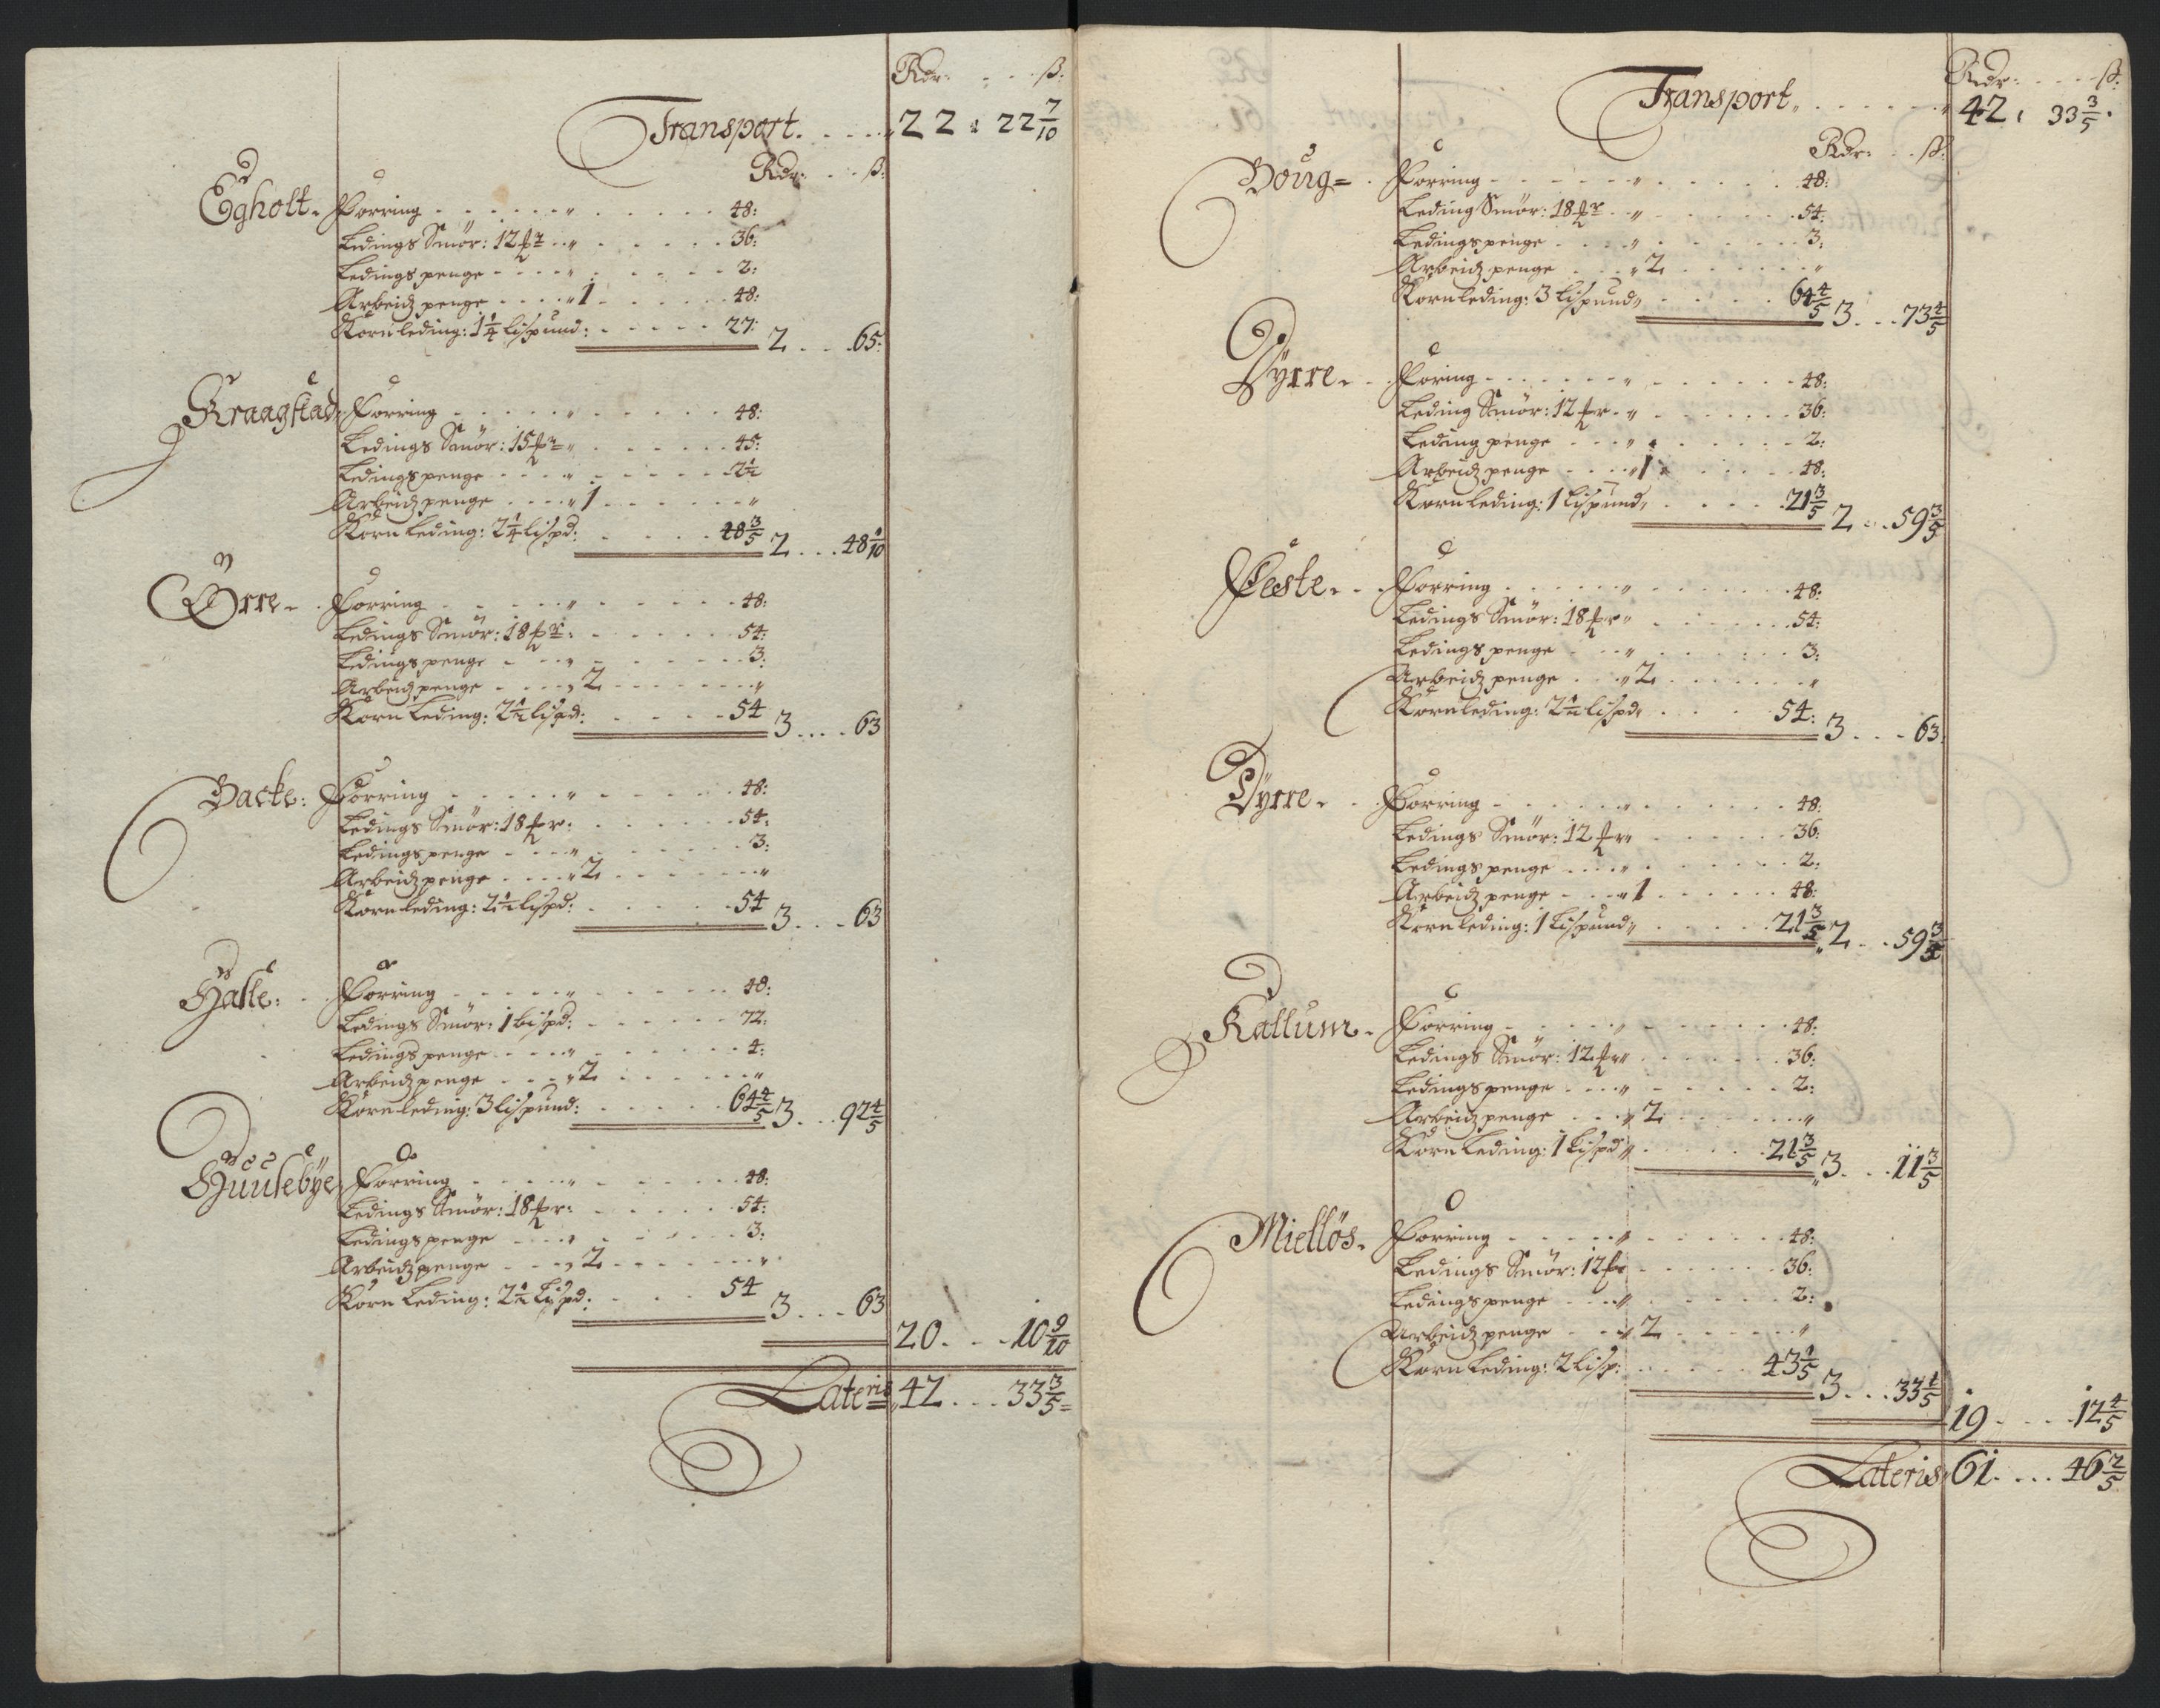 Rdr: . . . ß:
Transport. . . . . . 22 : 22 7/10
Rdr: . . . ß:
Egholt. Forring - - - - - - " . . . . . 48:
Ledings Smör: 12 pd . . " . . . . . . 36:
Ledings penge - - - - " - - - - - 2:
Arbeidz penge - - - - " 1 - - - - - - 48:
Kornleding: 1 1/4 lispund: - - - - - 27:
2 . . . 65:
Kraagstad. Forring - - - - - " - - - - - 48:
Ledings Smör: 15 pd " - - - - - - 45:
Ledings penge - - - - " - - - - - 2 1/2
Arbeidz penge - - - - " 1 - - - - - - "
Korn leding: 2 1/4 lispd: . . . . . 48 3/5
2 . . . 48 1/10
Ørre. Forring - - - - - " - - - - - - 48:
Ledings Smör: 18 pd: - - - - - - 54:
Ledings penge - - - " - - - - - - 3:
Arbeidz penge - - - - " 2 - - - - - - "
Korn leding: 2 1/2 lispd: . . . . . 54
3 . . . . 63
Backe: Forring - - - - - " - - - - - - 48:
Ledings Smör: 18 pr: . . . . . . 54:
Ledings penge - - - - " - - - - - - 3:
Arbeidz penge - - - - " 2 - - - - - - "
Korn leding: 2 1/2 lispd: . . . . . 54
3 . . . . 63
Halle: Forring - - - - - " - - - - - - 48:
Ledings Smör: 1 bispd: - - - - - - 72:
Ledings penge - - - - " - - - - - - 4:
Arbeidz penge - - - - " 2 - - - - - - "
Korn leding: 3 lispund: . . . . . 64 4/5
3 . . . 92 4/5
Huulebye Forring - - - - - " - - - - - - 48:
Ledings Smör: 18 pr: . . . . . . 54:
Ledings penge - - - - " - - - - - - 3:
Arbeidz penge - - - - " 2 - - - - - - "
Korn Leding: 2 1/2 Lispd: . . . . 54
3 . . . 63
20 . . . 10 9/10
Lateris 42 . . . 33 3/5
Rdr: . . . . ß:
Transport. . . . . . . " 42 : 33 3/5
Rdr: . . . ß:
Boug= Forring - - - - - - " - - - - - 48:
Leding Smör: 18 pr . . " - - - - - - 54:
Ledings penge - - - - " - - - - - - 3:
Arbeidz penge - - - " 2 - - - - - - "
Kornleding: 3 lispund " . . . . . 64 4/5
3 . . . 73 4/5
Dyrre. Foring - - - - - - - " - - - - - - 48:
Leding Smör: 12 pr . " - - - - - - 36:
Leding penge - - - - " - - - - - - 2:
Arbeidz penge - - - - " 1 - - - - - 48:
Kornleding: 1 Lispund " . . . . . 21 3/5
2 . . . 59 3/5
Feste. Forring - - - - - - " - - - - - - 48:
Ledings Smör: 18 pr " . . . . . . 54:
Ledings penge - - - " - - - - - - 3:
Arbeidz penge - - - " 2 - - - - - - "
Kornleding: 2 1/2 lispd " . . . . 54:
3 . . . 63:
Dyrre. Forring - - - - - - " - - - - - - 48:
Ledings Smör: 12 pr " - - - - - - 36:
Ledings penge - - - - " - - - - - - 2:
Arbeidz penge - - - " 1 - - - - - - 48:
Korn leding: 1 Lispund " . . . . . 21 3/5
2 . . . 59 3/5
Kallum. Forring - - - - - " - - - - - - 48:
Ledings Smör: 12 pr " . . . . . . 36:
Ledings penge - - - - " - - - - - - 2:
Arbeidz penge - - - " 2 - - - - - - "
Korn Leding: 1 Lispd " . . . . . . 21 3/5
3 . . . 11 3/5
Miellös. Forring - - - - - " - - - - - - 48:
Ledings Smör: 12 pr - - - - - - 36:
Ledings penge - - - - " - - - - - - 2:
Arbeidz penge - - - " 2 - - - - - - "
Korn Leding: 2 lisp: . . . . . 43 1/5
3 . . . 33 1/5
19 . . . . 12 4/5
Lateris 61 . . . . 46 2/5